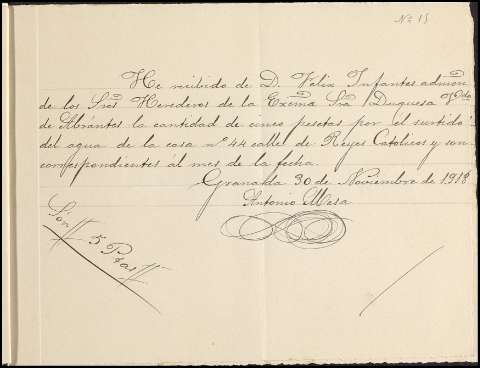 Nº 15
He recibido de D. Felix Infantes admon
de los Sres Herederos de la Excma Sra Duquesa Vda
de Abrántes la cantidad de cinco pesetas por el surtido
del agua de la casa nº 44 calle de Reyes Catolicos y son
correspondientes al mes de la fecha
Granada 30 de Noviembre de 1918
Antonio Mesa
Son
5 Ptas